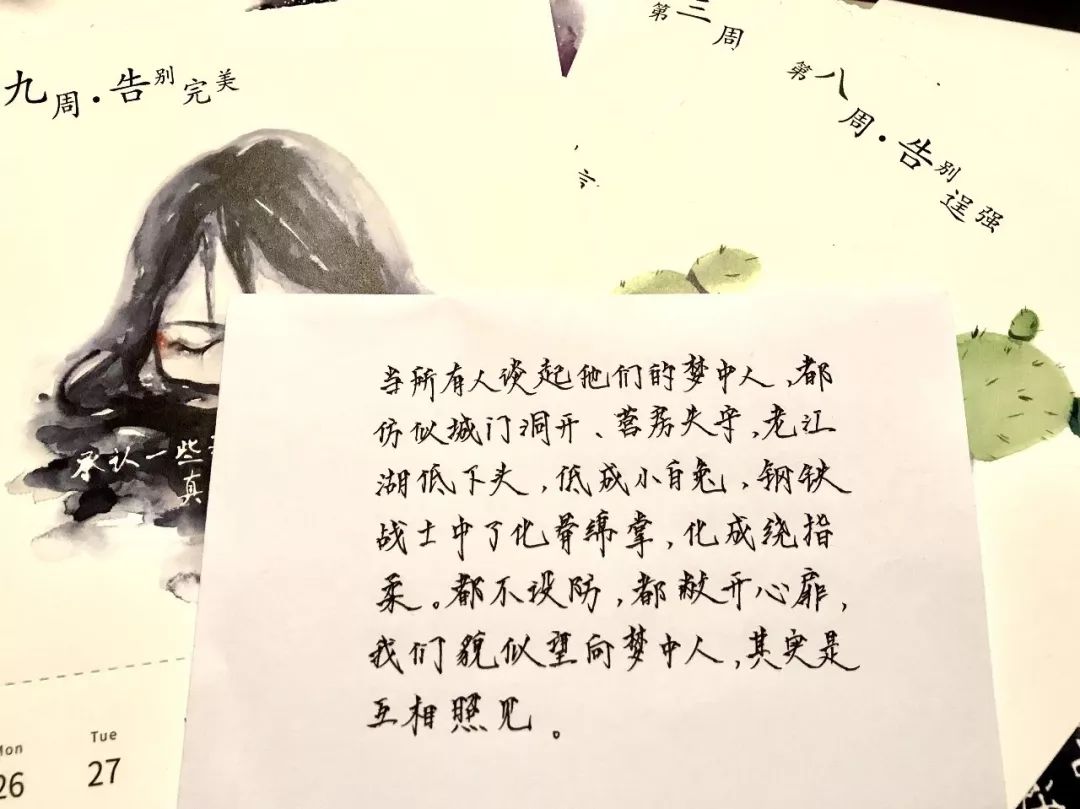 九周·告别完美
第三周
第八周·告别逞强
承认一些
真
当所有人谈起他们的梦中人，都
仿似城门洞开、营房失守，老江
湖低下头，低成小白兔，钢铁
战士中了化骨绵掌，化成绕指
柔。都不设防，都敞开心扉，
我们貌似望向梦中人，其实是
互相照见。
Mon
Tue
26
27